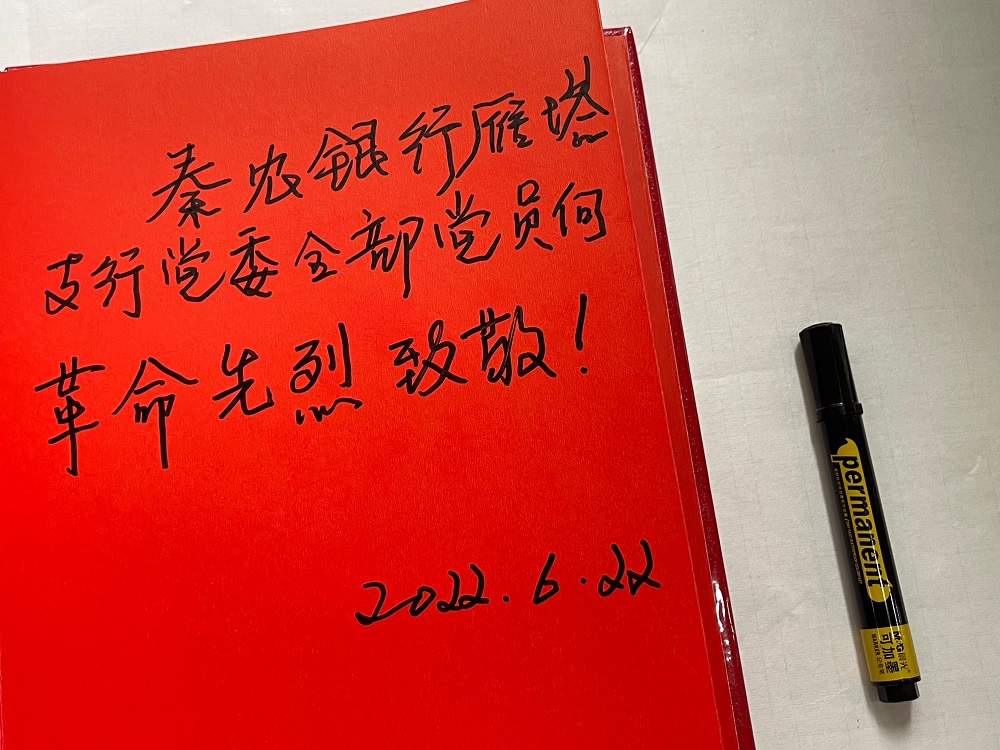 秦农银行雁塔
支行党委全部党员向
革命先烈致敬!
2022.6.22
permanent
M&G晨光
可加墨
MARKER 记号笔